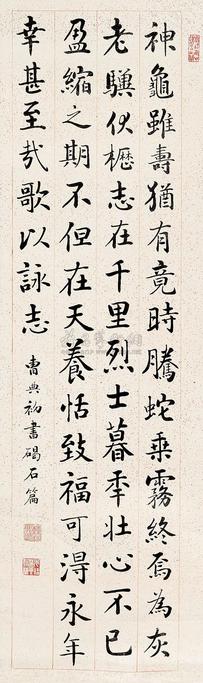 神龜雖壽猶有竟時騰蛇乘霧終焉為灰
老驥伏櫪志在千里烈士暮秊壯心不已
盈縮之期不但在天養恬致福可淂永年
幸甚至哉歌以詠志
曹典初書碣石篇